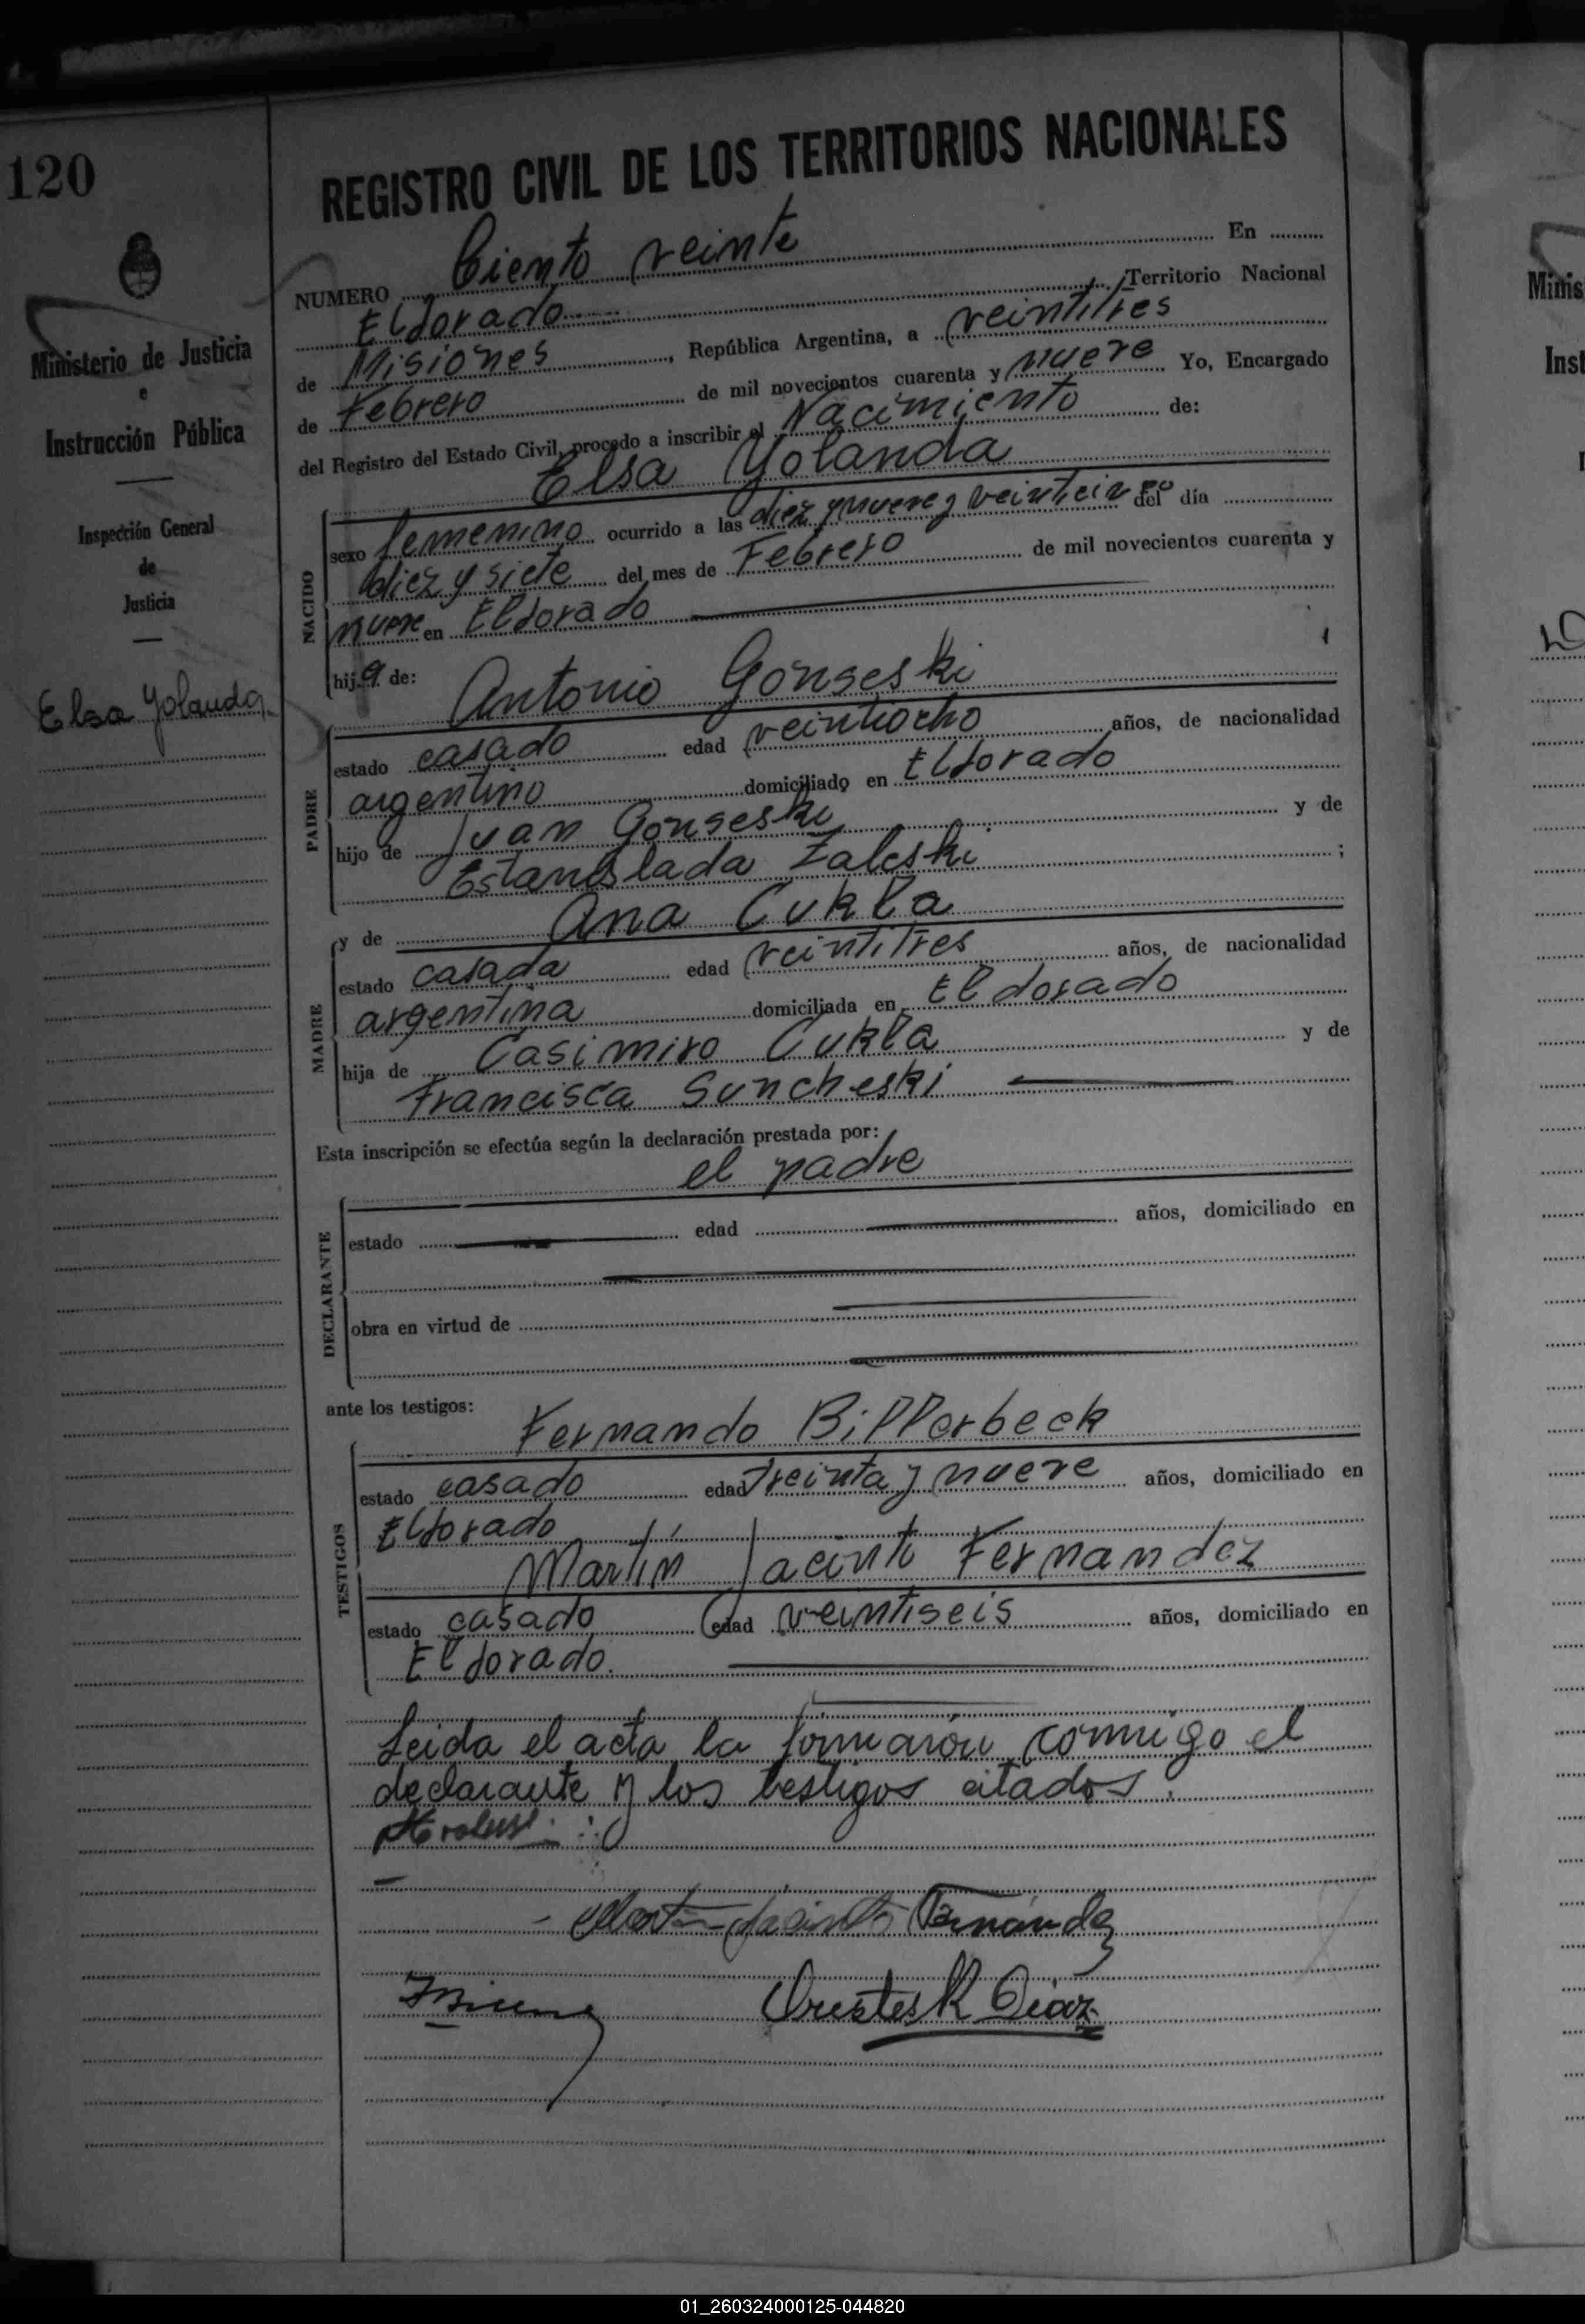 120
REGISTRO CIVIL DE LOS TERRITORIOS NACIONALES
Ministerio de Justicia
e
Instrucción Pública
Inspección General
de
Justicia
Elsa Yolanda
NUMERO Ciento veinte En
Eldorado Territorio Nacional
de Misiones, República Argentina, a veintitres
de Febrero de mil novecientos cuarenta y nueve Yo, Encargado
del Registro del Estado Civil, procedo a inscribir el Nacimiento de:
Elsa Yolanda
NACIDO
sexo femenino ocurrido a las diez y nueve y veinticinco del día
diez y siete del mes de Febrero de mil novecientos cuarenta y
nueve en Eldorado
hija de: Antonio Gonseski
PADRE
estado casado edad veintiocho años, de nacionalidad
argentino domiciliado en Eldorado
hijo de Juan Gonseski y de
Estanislada Zaleski ;
y de Ana Cukla
MADRE
estado casada edad veintitres años, de nacionalidad
argentina domiciliada en Eldorado
hija de Casimiro Cukla y de
Francisca Suncheski
Esta inscripción se efectúa según la declaración prestada por:
el padre
DECLARANTE
estado edad años, domiciliado en
obra en virtud de
ante los testigos:
Fernando Billerbeck
TESTIGOS
estado casado edad treinta y nueve años, domiciliado en
Eldorado
Martín Jacinto Fernandez
estado casado edad veintiseis años, domiciliado en
Eldorado.
Leida el acta la firmarón conmigo el
declarante y los testigos citados.
Martin Jacinto Fernandez
Orestes R Diaz
Minis
Inst
01_260324000125-044820